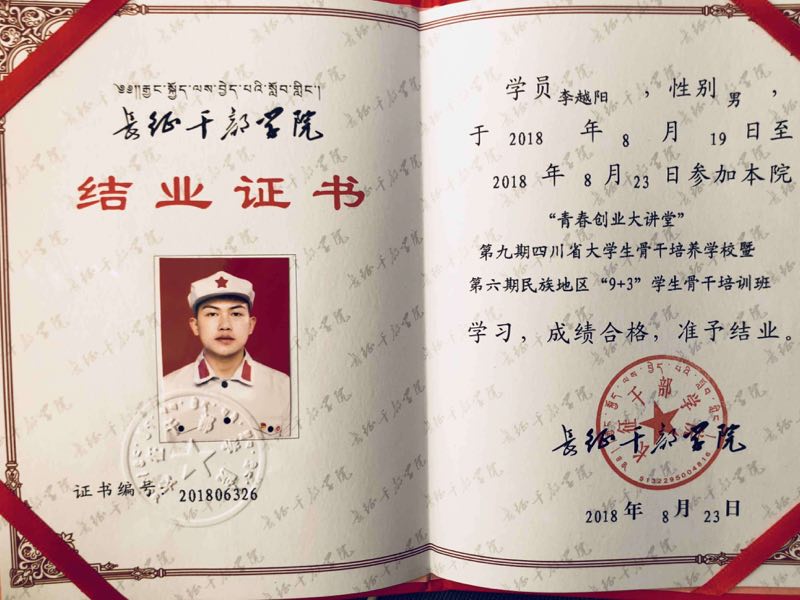 ༄༅།།རྒྱང་སྐྱོད་ལས་བྱེད་པའི་སློབ་གླིང་།
长征干部学院
结业证书
证书编号：201806326
学员李越阳，性别男，
于2018年8月19日至
2018年8月23日参加本院
“青春创业大讲堂”
第九期四川省大学生骨干培养学校暨
第六期民族地区“9+3”学生骨干培训班
学习，成绩合格，准予结业。
长征干部学院
5132295004816
2018年8月23日